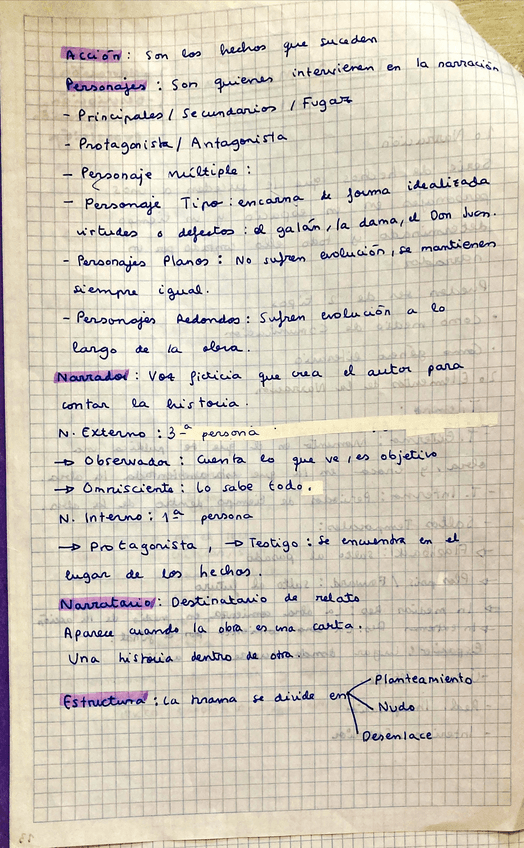 Acción: Son los hechos que suceden
Personajes: Son quienes intervienen en la narración
- Principales / Secundarios / Fugaz
- Protagonista / Antagonista
- Personaje Múltiple:
- Personaje Tipo: encarna de forma idealizada
virtudes o defectos: el galán, la dama, el Don Juan.
- Personajes Planos: No sufren evolución, se mantienen
siempre igual.
- Personajes Redondos: Sufren evolución a lo
largo de la obra.
Narrador: Voz ficticia que crea el autor para
contar la historia.
N. Externo: 3ª persona
→ Observador: Cuenta lo que ve, es objetivo
→ Omnisciente: Lo sabe todo.
N. Interno: 1ª persona
→ Protagonista, → Testigo: Se encuentra en el
lugar de los hechos.
Narratario: Destinatario de relato
Aparece cuando la obra es una carta.
Una historia dentro de otra.
Estructura: La trama se divide en
Planteamiento
Nudo
Desenlace
13